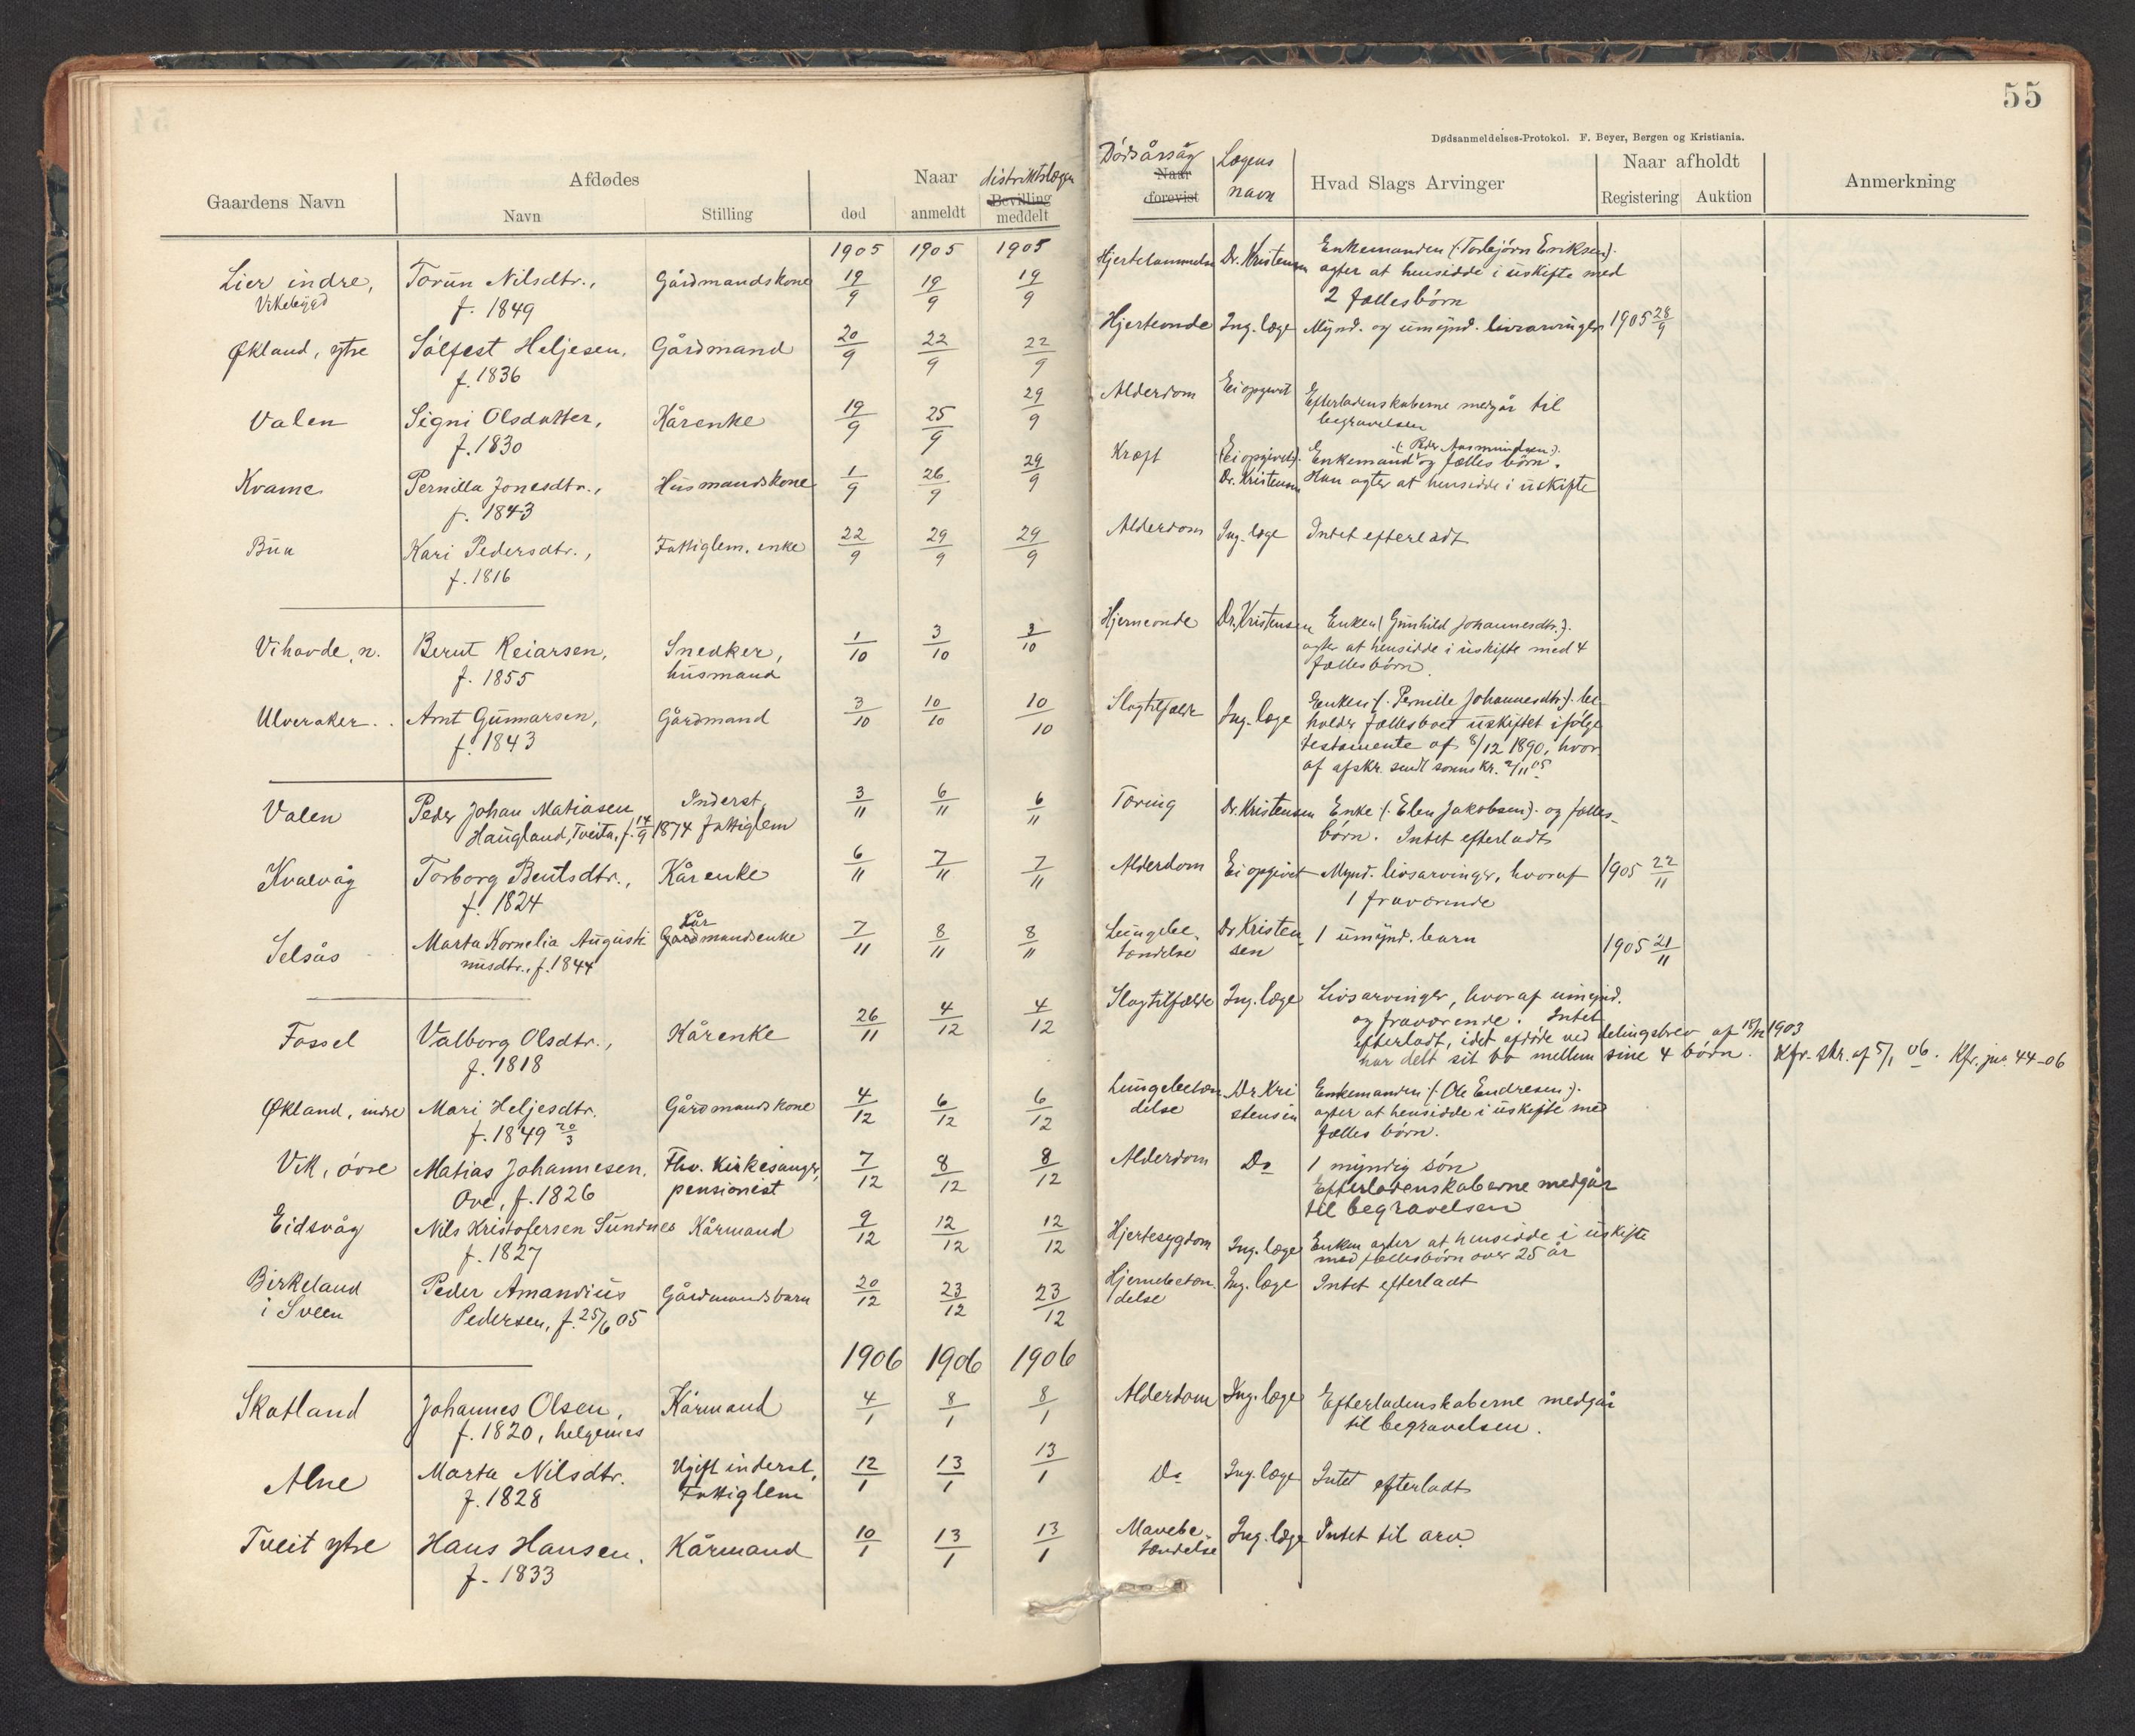 55
Dødsanmeldelses-Protokol. F. Beyer, Bergen og Kristiania.
Gaardens Navn
Afdødes
Navn
Stilling
Naar
død
anmeldt
distriktslægen
Bevilling
meddelt
Dödsårsåg
Naar
forevist
Lægens
navn
Hvad Slags Arvinger
Naar afholdt
Registering
Auktion
Anmerkning
1905 1905 1905
Lier indre, Torun Nilsdtr., Gårdmandskone 19/9 19/9 19/9 Dr. Kristensen Enkemanden (: Torbjørn Eriksen :)
Vikebygd f. 1849 agter at hensidde i uskifte med
2 fællesbörn
Økland, ytre Sólfest Heljesen, Gårdmand 20/9 22/9 22/9 Hjerteonde Ing. læge Mynd. og umynd. livsarvinger 1905 28/9
f. 1836
Valen Signi Olsdatter, Kårenke 19/9 25/9 29/9 Alderdom Ei opgivet Efterladenskaberne medgår til
f. 1830 begravelsen
Kvame Pernilla Jonesdtr., Husmandskone 1/9 26/9 29/9 Kræft (Ei opgivet). Enkemand (: Peder Aasmundsen :) og fælles börn.
f. 1843 Dr. Kristensen Han agter at hensidde i uskifte
Bua Kari Pedersdtr., Fattiglem. enke 22/9 29/9 29/9 Alderdom Ing. læge Intet efterladt
f. 1816
Vihovde, n. Bernt Reiarsen, Snedker, 1/10 3/10 3/10 Hjerneonde Dr. Kristensen Enken (: Gunhild Johannesdtr. :)
f. 1855 husmand agter at hensidde i uskifte med 4
fællesbörn
Ulveraker. Arnt Gunnarsen, Gårdmand 3/10 10/10 10/10 Slagtilfælde Ing. læge Enken (: Pernille Johannesdtr :) be-
f. 1843 holder fællesboet uskiftet ifölge
testamente af 8/12 1890, hvor-
af afskr. sendt sornskr. 2/11 05
Valen Peder Johan Matiasen Inderst, 3/11 6/11 6/11 Tæring Dr. Kristensen Enke (: Elen Jakobsen :) og fælles-
Haugland, Tveita, f. 14/9 1874 fattiglem börn. Intet efterladt
Kvalvåg Torborg Bentsdtr., Kårenke 6/11 7/11 7/11 Alderdom Ei opgivet Mynd. livsarvinger, hvoraf 1905 22/11
f. 1824 1 fraværende
Selsås Marta Kornelia Augusti Kår Gårdmandsenke 7/11 8/11 8/11 Lungebe- Dr Kristen- 1 umynd. barn 1905 21/11
nusdtr., f. 1844 tændelse sen
Fossel Valborg Olsdtr., Kårenke 26/11 4/12 4/12 Slagtilfælde Ing. læge Livsarvinger, hvoraf umynd.
f. 1818 og fraværende. Intet
efterladt, idet afdöde ved delingsbrev af 15/12 1903
har delt sit bo mellem sine 4 börn. Kfr. skr. af 5/1 06. Kfr. jnr. 44-06
Økland, indre Mari Heljesdtr. Gårdmandskone 4/12 6/12 6/12 Lungebetæn Dr. Kri Enkemanden (: Ole Endresen :)
f. 1849 20/3 delse stensen agter at hensidde i uskifte med
fælles börn.
Vik, övre Matias Johannesen. Fhv. Kirkesanger, 7/12 8/12 8/12 Alderdom Do 1 myndig sön
Ove, f. 1826 pensionist Efterladenskaberne medgår
til begravelsen
Eidsvåg Nils Kristofersen Sundnes Kårmand 9/12 12/12 12/12 Hjertesygdom Ing. læge Enken agter at hensidde i uskifte
f. 1827 med fællesbörn over 25 år
Birkeland Peder Amandius Gårdmandsbarn 20/12 23/12 23/12 Hjernebetæn- Ing. læge Intet efterladt
i Sveen Pedersen, f. 25/6 05 delse
1906 1906 1906
Skatland Johannes Olsen, Kårmand 4/1 8/1 8/1 Alderdom Ing. læge Efterladenskaberne medgår
f. 1820, til begravelsen.
Alne Marta Nilsdtr. Ugift inderst, 12/1 13/1 13/1 Do Ing. læge Intet efterladt
f. 1828 Fattiglem
Tveit ytre Hans Hansen, Kårmand 10/1 13/1 13/1 Mavebe- Ing. læge Intet til arv.
f. 1833 tændelse